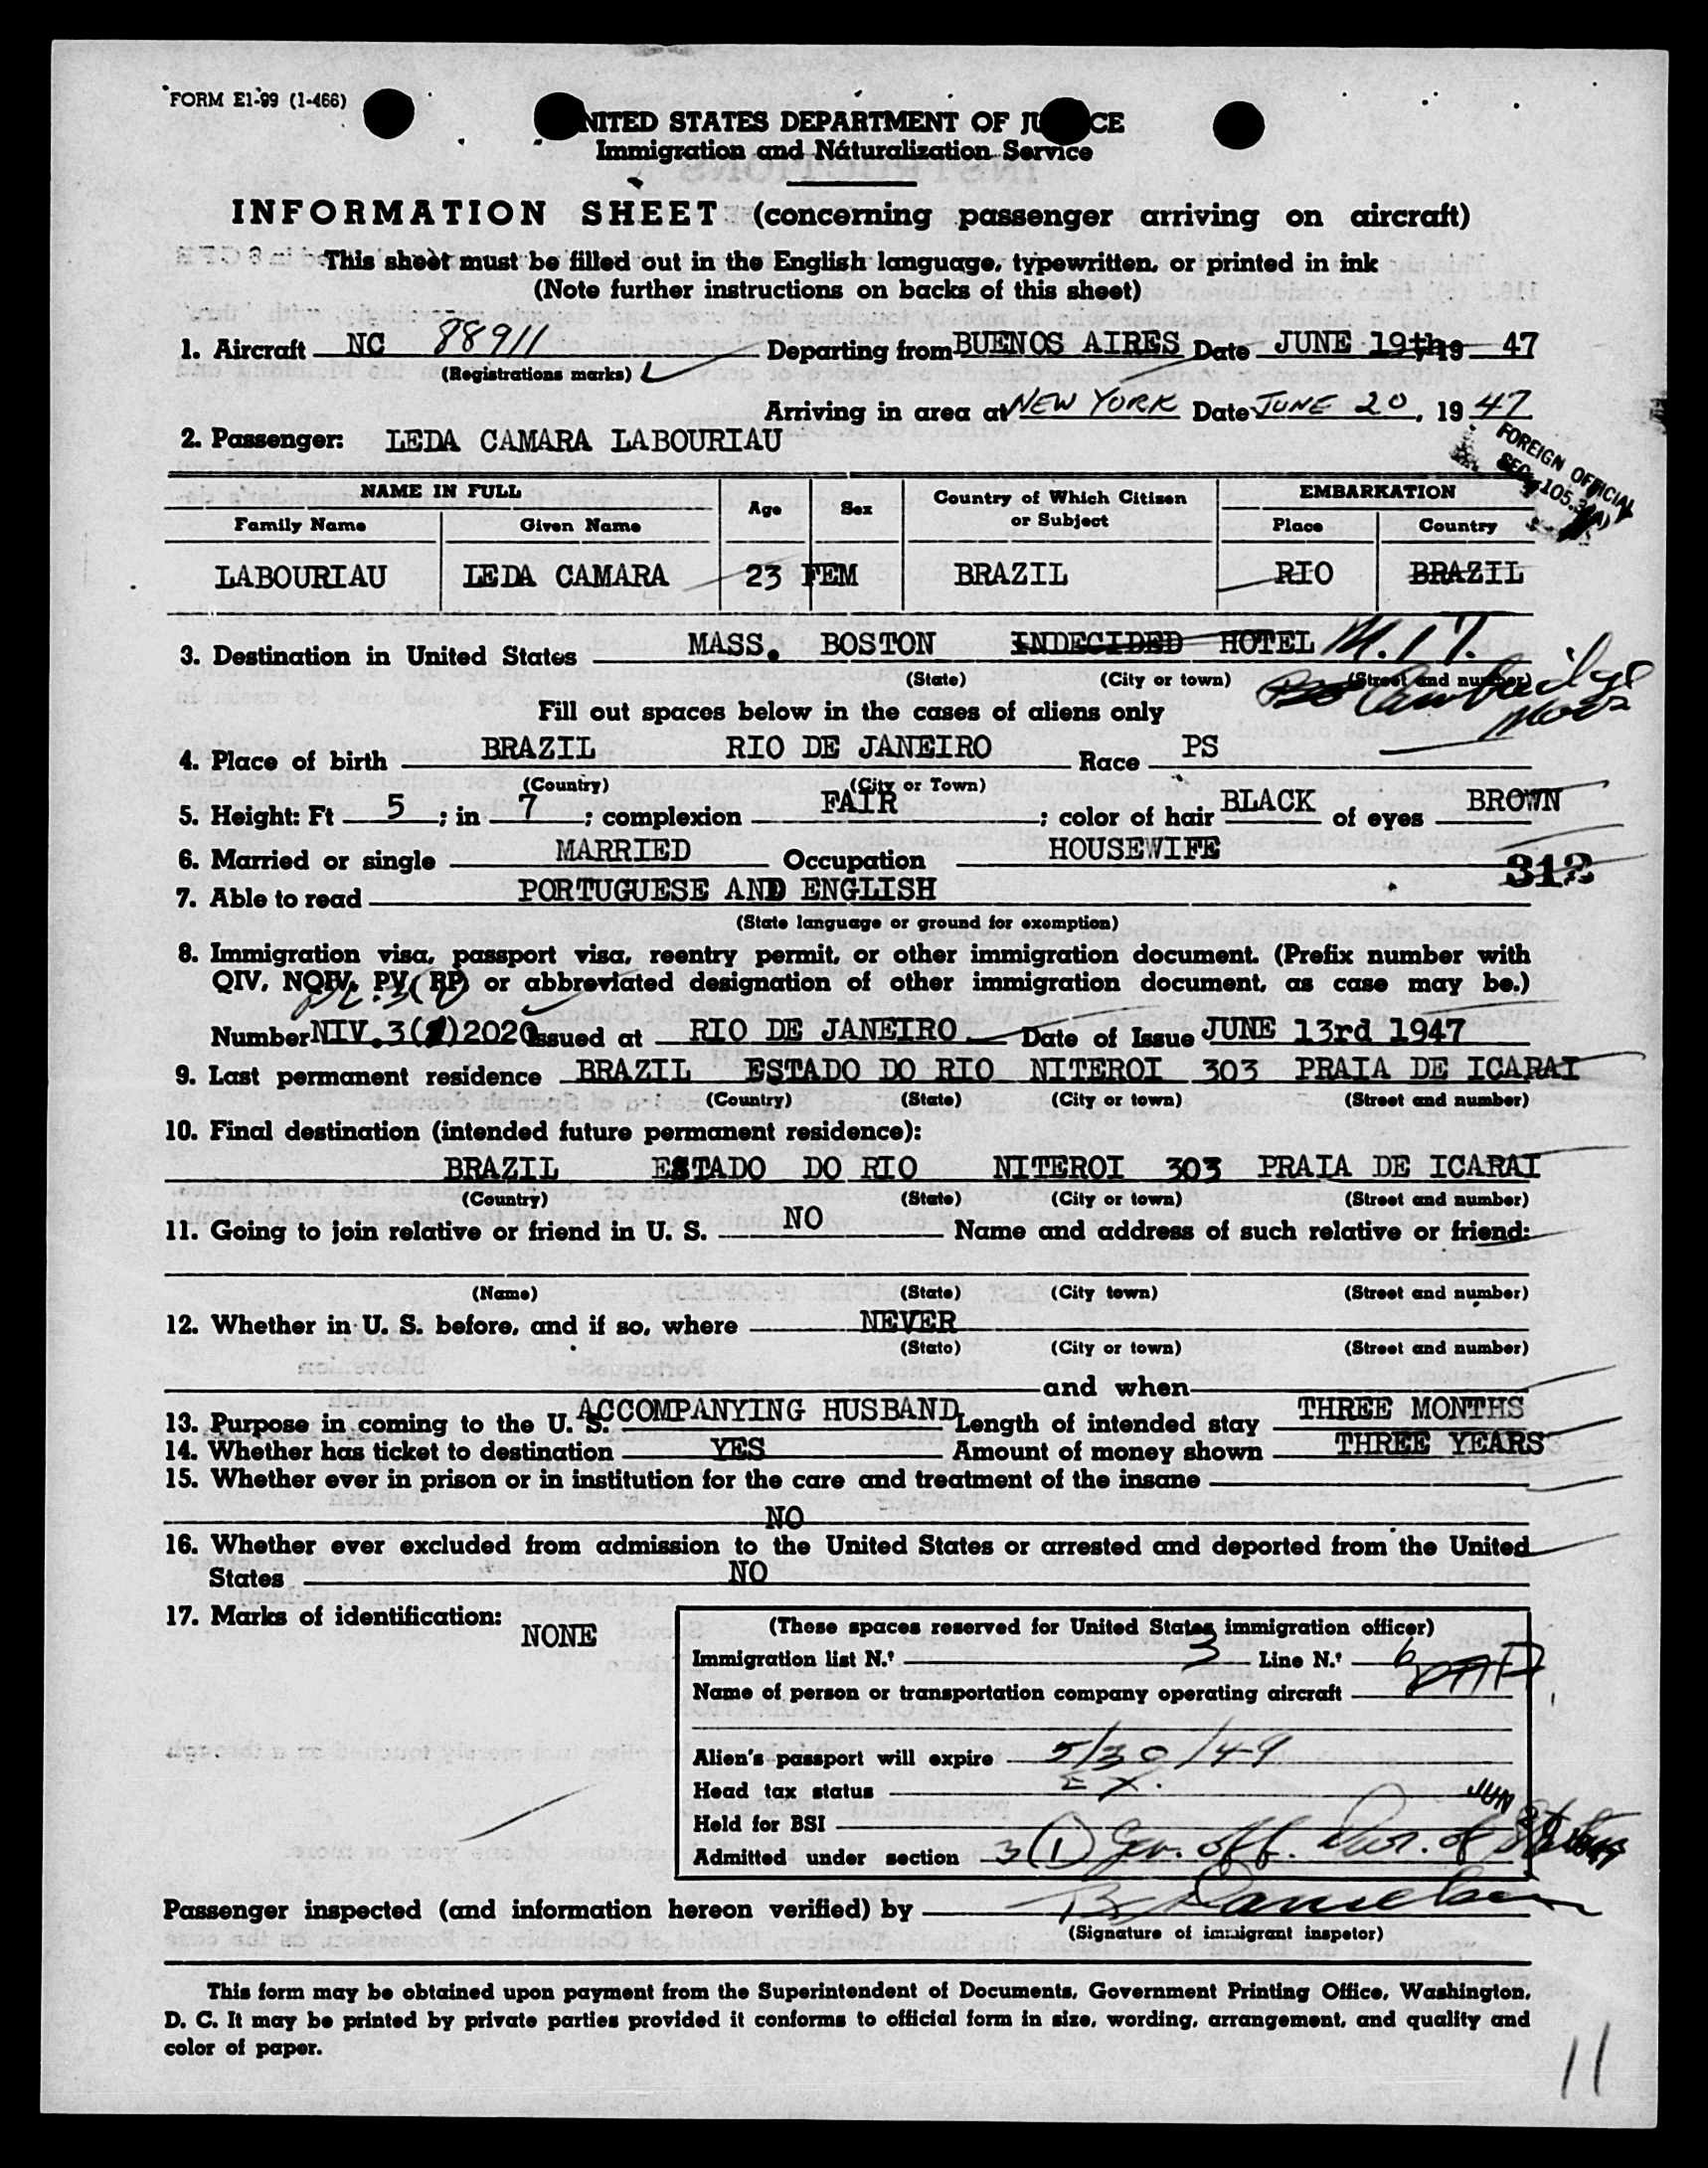 FORM E1-99 (1-466)
NITED STATES DEPARTMENT OF JU CE
Immigration and Naturalization Service
INFORMATION SHEET (concerning passenger arriving on aircraft)
This sheet must be filled out in the English language, typewritten, or printed in ink
(Note further instructions on backs of this sheet)
1. Aircraft NC 88911 Departing from BUENOS AIRES Date JUNE 19th 19 47
(Registrations marks)
Arriving in area at NEW YORK Date JUNE 20, 19 47
2. Passenger: LEDA CAMARA LABOURIAU
FOREIGN OFFICIAL
SEC. 105.3
NAME IN FULL Age Sex Country of Which Citizen or Subject EMBARKATION
Family Name Given Name Place Country
LABOURIAU LEDA CAMARA 23 FEM BRAZIL RIO BRAZIL
3. Destination in United States MASS. BOSTON INDECIDED HOTEL M.I.T.
(State) (City or town) (Street and number)
Cambridge
Mass
Fill out spaces below in the cases of aliens only
4. Place of birth BRAZIL RIO DE JANEIRO Race PS
(Country) (City or Town)
5. Height: Ft 5 ; in 7 ; complexion FAIR ; color of hair BLACK of eyes BROWN
6. Married or single MARRIED Occupation HOUSEWIFE
312
7. Able to read PORTUGUESE AND ENGLISH
(State language or ground for exomption)
8. Immigration visa, passport visa, reentry permit, or other immigration document. (Prefix number with
QIV, NQIV, PV, RP) or abbreviated designation of other immigration document, as case may be.)
Number NIV.3(1)2020 Issued at RIO DE JANEIRO Date of Issue JUNE 13rd 1947
9. Last permanent residence BRAZIL ESTADO DO RIO NITEROI 303 PRAIA DE ICARAI
(Country) (State) (City or town) (Street and number)
10. Final destination (intended future permanent residence):
BRAZIL ESTADO DO RIO NITEROI 303 PRAIA DE ICARAI
(Country) (State) (City or town) (Street and number)
11. Going to join relative or friend in U. S. NO Name and address of such relative or friend:
(Name) (State) (City town) (Street and number)
12. Whether in U. S. before, and if so, where NEVER
(State) (City or town) (Street and number)
and when
13. Purpose in coming to the U. S. ACCOMPANYING HUSBAND Length of intended stay THREE MONTHS
14. Whether has ticket to destination YES Amount of money shown THREE YEARS
15. Whether ever in prison or in institution for the care and treatment of the insane
NO
16. Whether ever excluded from admission to the United States or arrested and deported from the United
States NO
17. Marks of identification: NONE
(These spaces reserved for United States immigration officer)
Immigration list N.º 3 Line N.º 6
Name of person or transportation company operating aircraft
Alien's passport will expire 5/30/49
Head tax status EX.
JUN
Held for BSI
Admitted under section 3(1) Gov. off. Dur. of
Passenger inspected (and information hereon verified) by
(Signature of immigrant inspetor)
This form may be obtained upon payment from the Superintendent of Documents, Government Printing Office, Washington,
D. C. It may be printed by private parties provided it conforms to official form in size, wording, arrangement, and quality and
color of paper.
11